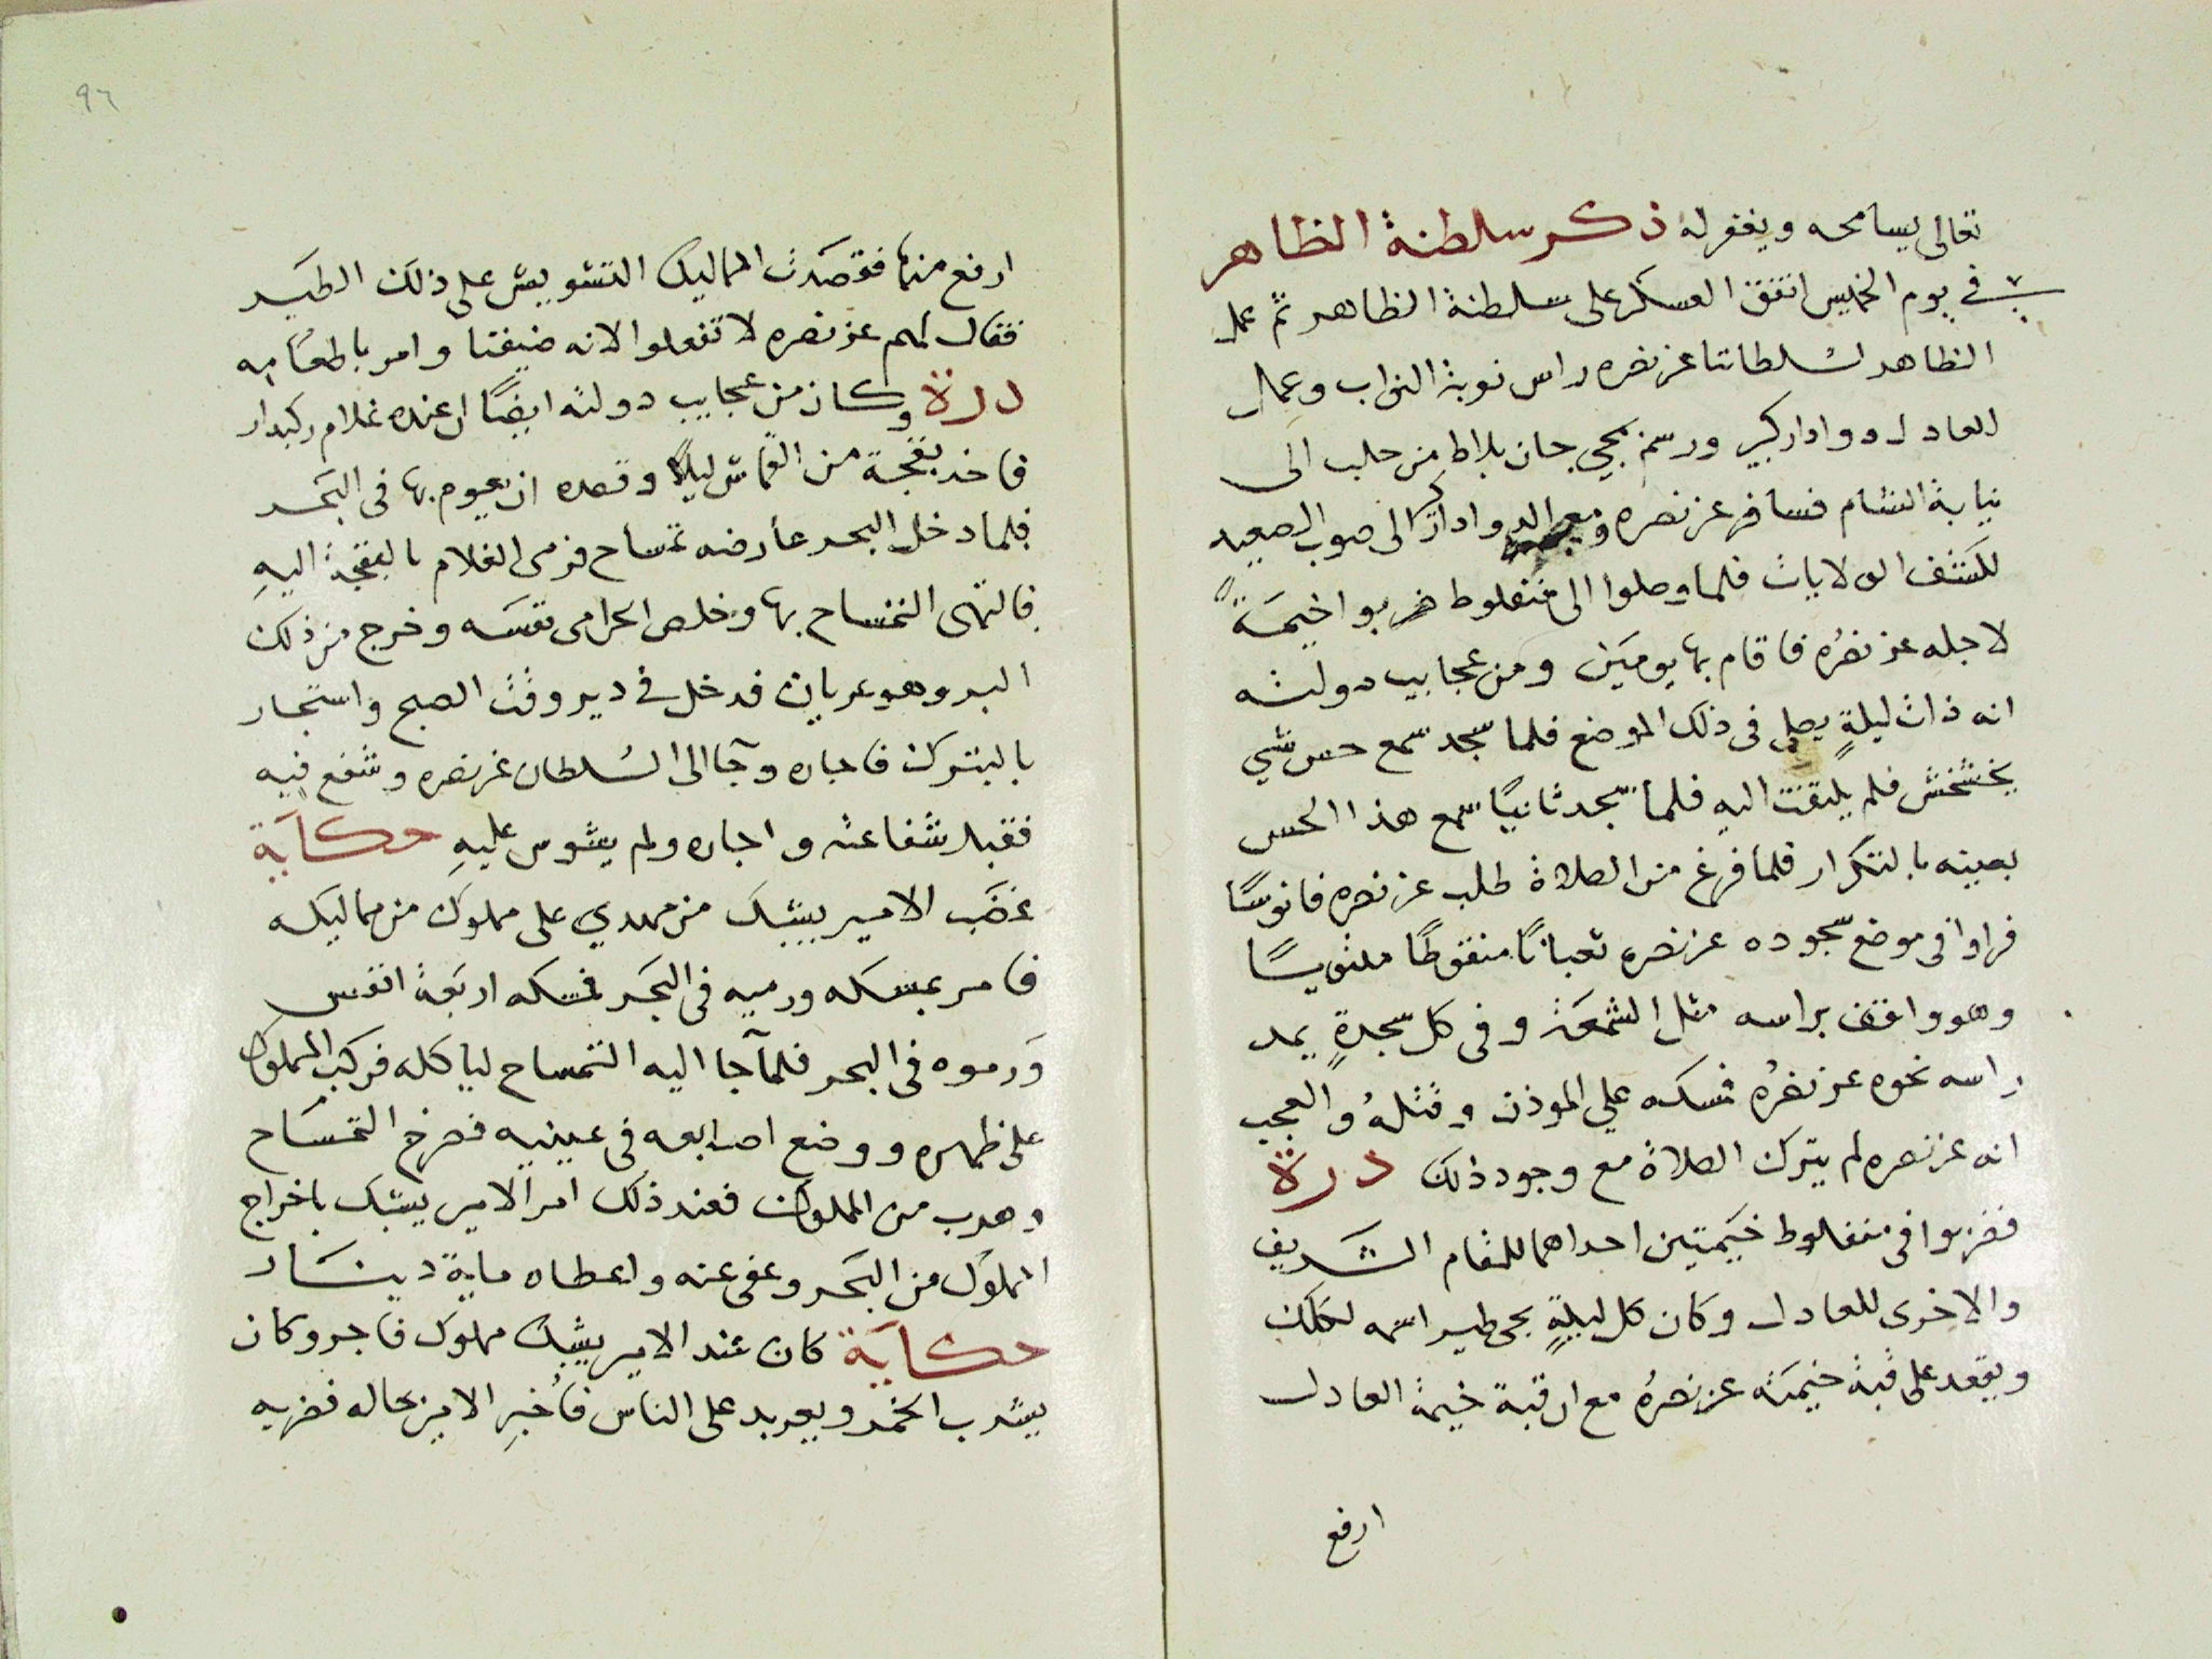 تعالى يسامحه ويغفر له ذكر سلطنة الظاهر
في يوم الخميس اتفق العسكر على سلطنة الظاهر ثم عمل
الظاهر لسلطاننا عز نصره راس نوبة النواب وعمل
العادل دوادار كبير ورسم بمجي جان بلاط من حلب الى
نيابة الشام فسافر عز نصره ومع الدوادار الى صوب الصعيد
لكشف الولايات فلما وصلوا الى منفلوط ضربوا خيمةً
لاجله عز نصره فاقام بها يومين ومن عجايب دولته
انه ذات ليلةٍ يصلي في ذلك الموضع فلما سجد سمع حس شي
يخشخش فلم يلتفت اليه فلما سجد ثانيًا سمع هذا الحس
بعينه بالتكرار فلما فرغ من الصلاة طلب عز نصره فانوسًا
فراوا في موضع سجوده عز نصره ثعبانًا منقوطًا ملثويسًا
وهو واقف براسه مثل الشمعة وفي كل سجدةٍ يمد
راسه نحوه عز نصره فمسكه علي الموذن وقتلهُ والعجب
انه عز نصره لم يترك الصلاة مع وجود ذلك درة
فضربوا في منفلوط خيمتين احداهما للمقام الشريف
والاخرى للعادل وكان كل ليلةٍ يجي طير اسمه لكلك
ويقعد على قبة خيمته عز نصره مع ان قبة خيمة العادل
ارفع
٩٦
ارفع منها فقصدت المماليك التشويش على ذلك الطير
فقال لهم عز نصره لا تفعلوا لانه ضيفنا وامر باطعامه
درة وكان من عجايب دولته ايضًا ان عنده غلام ركبدار
فاخد بقجة من القماش ليلًا وقصده ان يعوم بها في البحر
فلما دخل البحر عارضه تمساح فرمى الغلام بالبقجة اليهِ
فالتهى التمساح بها وخلص الحرامى نفسه وخرج من ذلك
البر وهو عريان فدخل في دير وقت الصبح واستجار
بالبترك فاجاره وجآ الى السلطان عز نصره وشفع فيه
فقبل شفاعته واجاره ولم يشوس عليهِ حكاية
غضب الامير يشبك من مهدي على مملوك من مماليكه
فامر بمسكه ورميه في البحر فمسكه اربعة انفس
ورموه في البحر فلمآ جا اليه التمساح لياكله فركب المملوك
على ظهره ووضع اصابعه في عينيه فصرخ التمساح
وهرب من المملوك فعند ذلك امر الامير يشبك باخراج
المملوك من البحر وعفى عنه واعطاه ماية دينار
حكاية كان عند الامير يشبك مملوك فاجر وكان
يشرب الخمر ويعربد على الناس فاُخبِر الامير بحاله فضربه